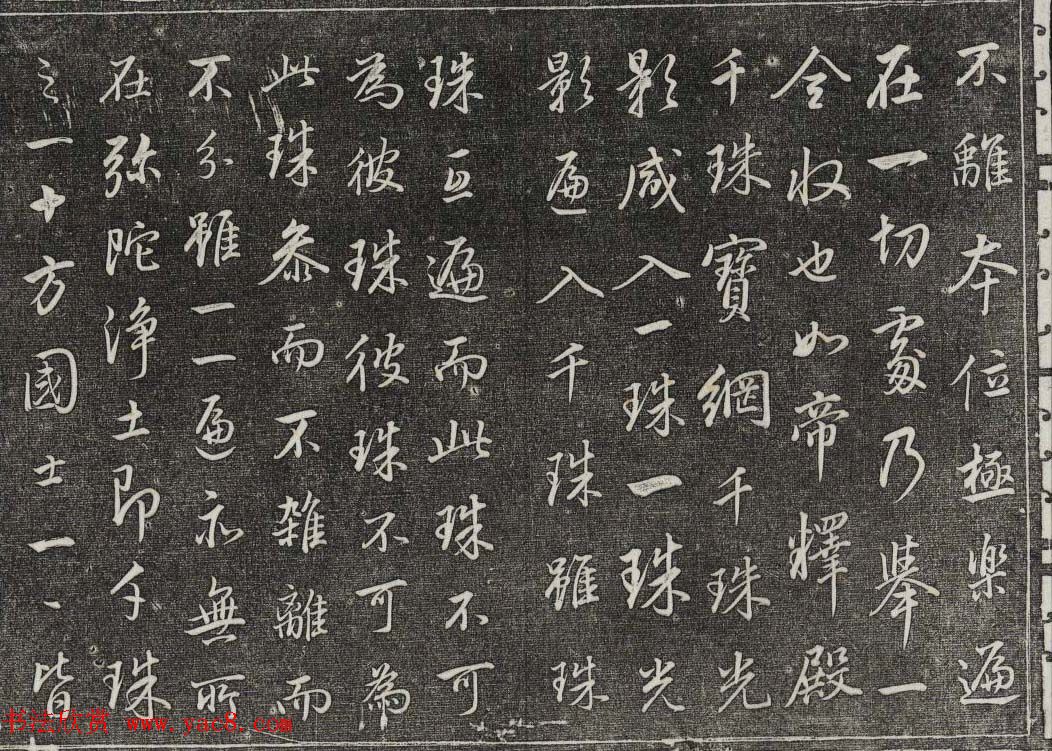 不離本位極樂遍
在一切處乃舉一
全收也如帝釋殿
千珠寶網千珠光
影咸入一珠一珠光
影遍入千珠雖珠
珠互遍而此珠不可
為彼珠彼珠不可為
此珠叅而不雜離而
不分雖一一遍亦無所
在弥陀淨土即千珠
之一十方國土一一皆
书法欣赏 www.yac8.com